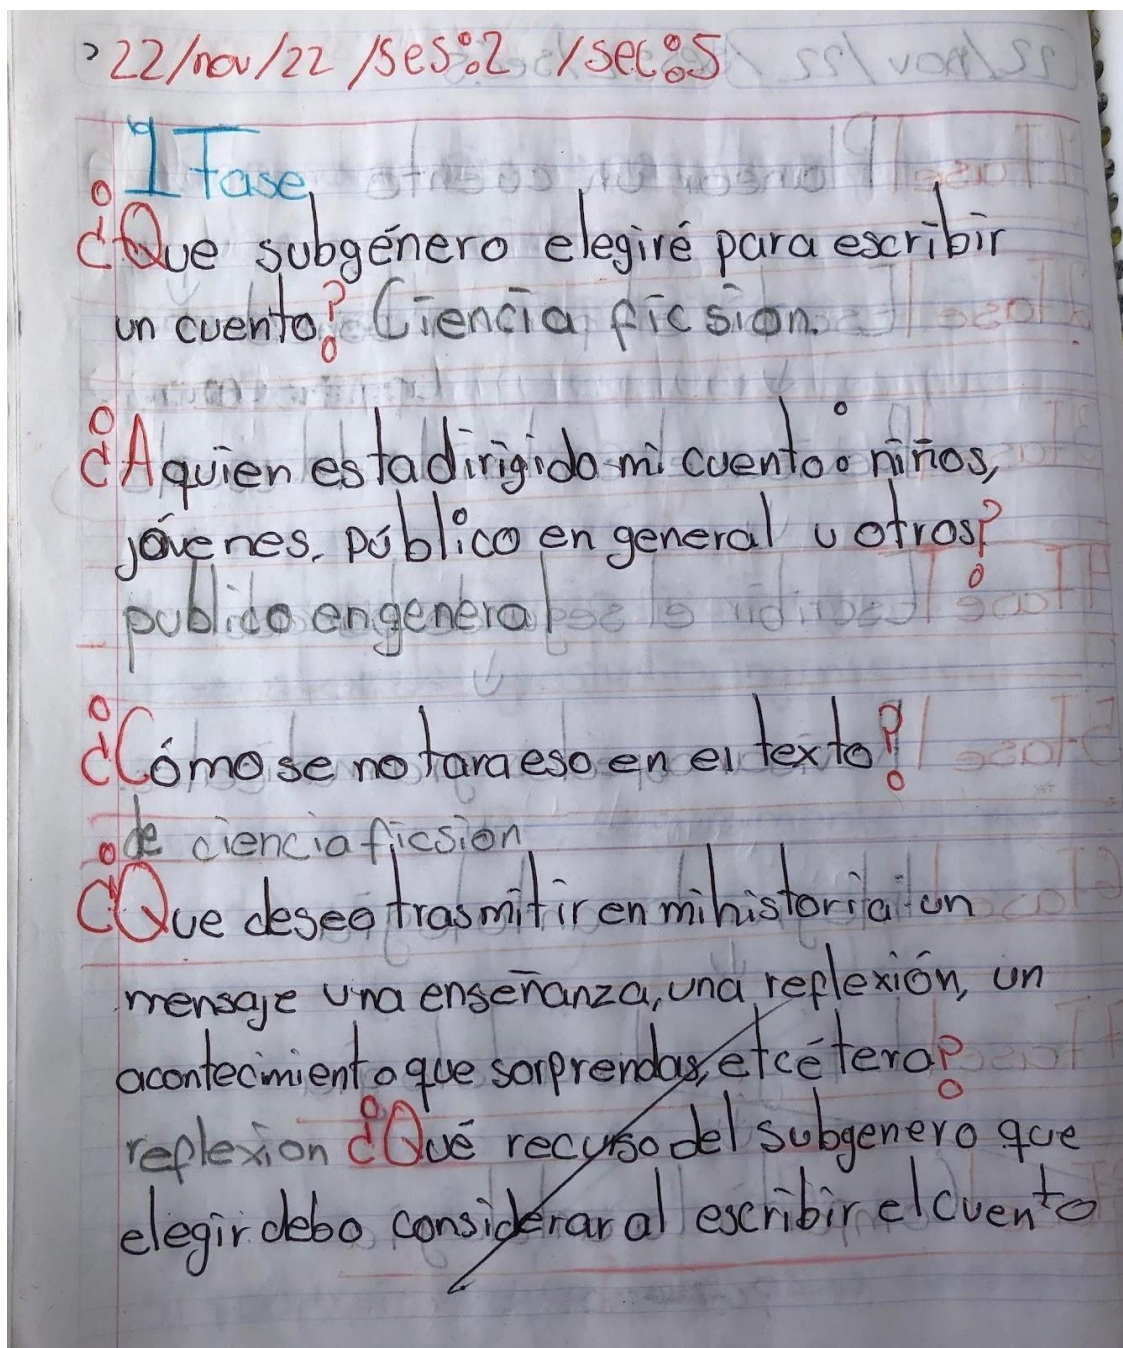 22/nov/22 /ses:2 /sec:5
1 Fase
¿Que subgénero elegiré para escribir
un cuento? Ciencia ficsion.
¿A quien esta dirigido mi cuento: niños,
jóvenes, público en general u otros?
publico en general
¿Cómo se notara eso en el texto?
de ciencia ficsion
¿Que deseo trasmitir en mi historia: un
mensaje una enseñanza, una reflexión, un
acontecimiento que sorprendas, etcétera?
reflexion ¿Qué recurso del subgenero que
elegir debo considerar al escribir el cuento